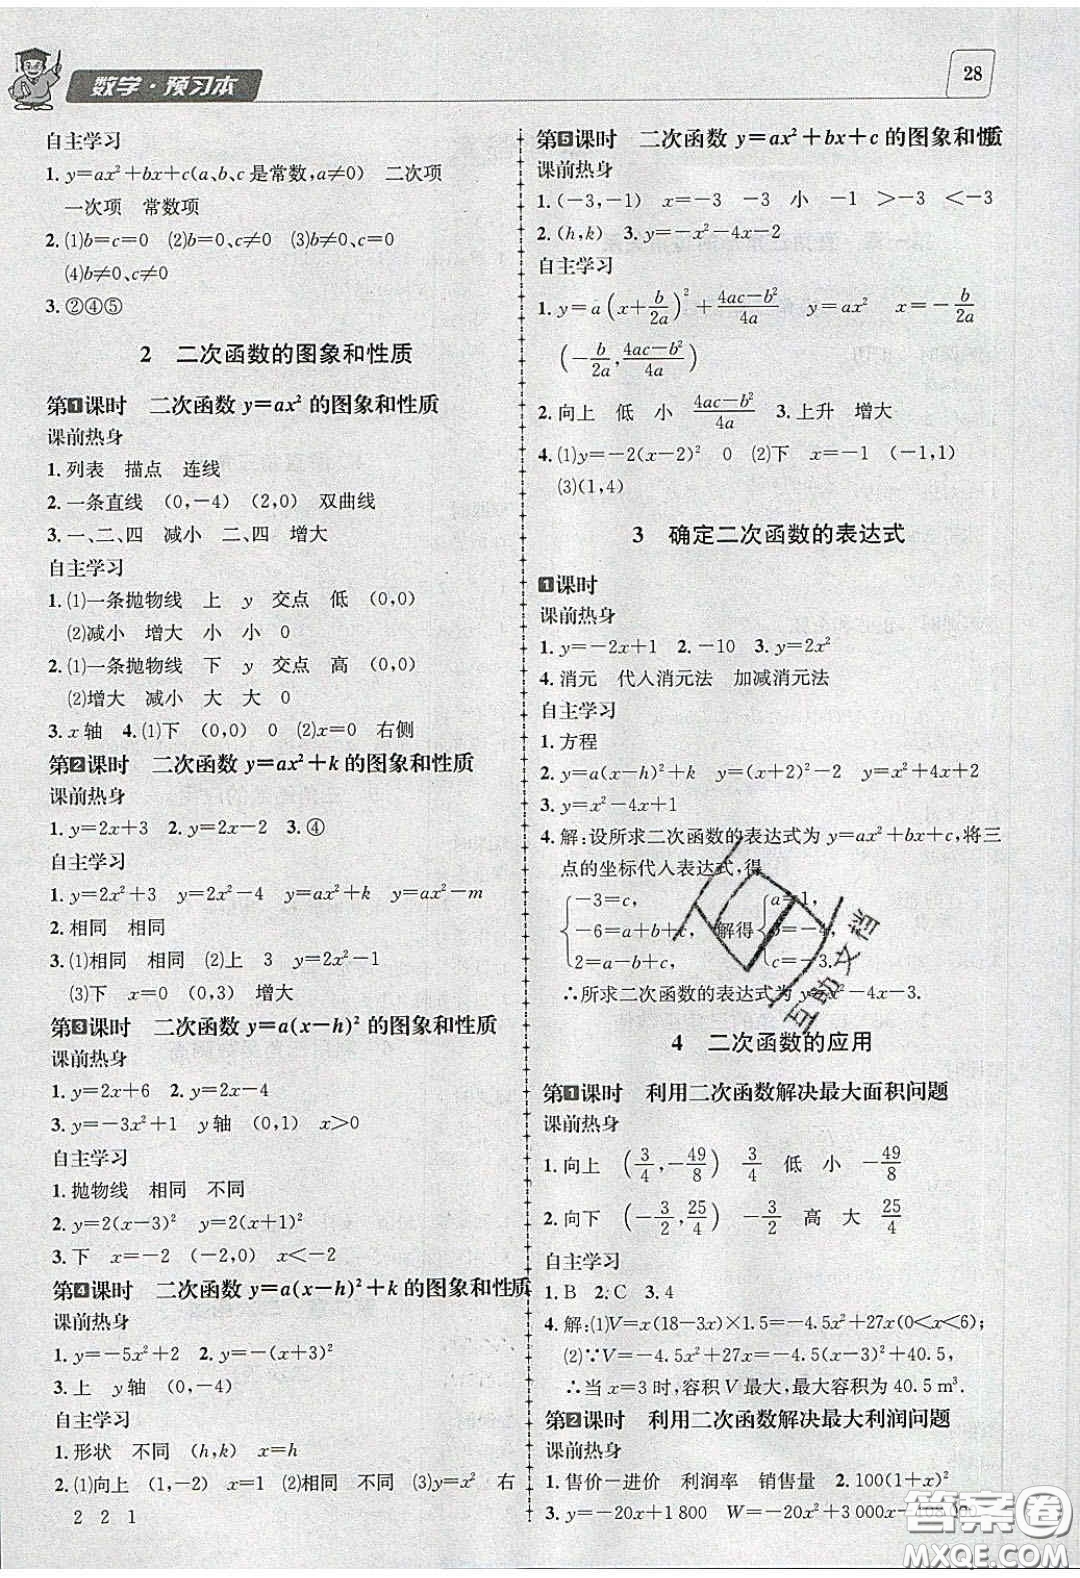 数学·预习本
28
自主学习
1. y=ax²+bx+c(a、b、c 是常数,a≠0) 二次项
一次项 常数项
2. (1)b=c=0 (2)b=0、c≠0 (3)b≠0、c=0
(4)b≠0、c≠0
3. ②④⑤
2 二次函数的图象和性质
第1课时 二次函数 y=ax² 的图象和性质
课前热身
1. 列表 描点 连线
2. 一条直线 (0,-4) (2,0) 双曲线
3. 一、二、四 减小 二、四 增大
自主学习
1. (1)一条抛物线 上 y 交点 低 (0,0)
(2)减小 增大 小 小 0
2. (1)一条抛物线 下 y 交点 高 (0,0)
(2)增大 减小 大 大 0
3. x 轴 4. (1)下 (0,0) 0 (2)x=0 右侧
第2课时 二次函数 y=ax²+k 的图象和性质
课前热身
1. y=2x+3 2. y=2x-2 3. ④
自主学习
1. y=2x²+3 y=2x²-4 y=ax²+k y=ax²-m
2. 相同 相同
3. (1)相同 相同 (2)上 3 y=2x²-1
(3)下 x=0 (0,3) 增大
第3课时 二次函数 y=a(x-h)² 的图象和性质
课前热身
1. y=2x+6 2. y=2x-4
3. y=-3x²+1 y轴 (0,1) x>0
自主学习
1. 抛物线 相同 不同
2. y=2(x-3)² y=2(x+1)²
3. 下 x=-2 (-2,0) x<-2
第4课时 二次函数 y=a(x-h)²+k 的图象和性质
课前热身
1. y=-5x²+2 2. y=-(x+3)²
3. 上 y轴 (0,-4)
自主学习
1. 形状 不同 (h,k) x=h
2. (1)向上 (1,-2) x=1 (2)相同 不同 (3)y=x² 右
2 2 1
第5课时 二次函数 y=ax²+bx+c 的图象和性质
课前热身
1. (-3,-1) x=-3 -3 小 -1 >-3 <-3
2. (h,k) 3. y=-x²-4x-2
自主学习
1. y=a(x+b/2a)²+(4ac-b²)/4a y=ax² x=-b/2a
(-b/2a, (4ac-b²)/4a)
2. 向上 低 小 (4ac-b²)/4a 3. 上升 增大
4. (1)y=-2(x-2)² 0 (2)下 x=-1 (-1,1)
(3)(1,4)
3 确定二次函数的表达式
1课时
课前热身
1. y=-2x+1 2. -10 3. y=2x²
4. 消元 代入消元法 加减消元法
自主学习
1. 方程
2. y=a(x-h)²+k y=(x+2)²-2 y=x²+4x+2
3. y=x²-4x+1
4. 解:设所求二次函数的表达式为 y=ax²+bx+c,将三
点的坐标代入表达式,得
{-3=c, -6=a+b+c, 2=a-b+c, 解得 {a=1, b=-4, c=-3.
∴所求二次函数的表达式为 y=x²-4x-3.
4 二次函数的应用
第1课时 利用二次函数解决最大面积问题
课前热身
1. 向上 (3/4,-49/8) 3/4 低 小 -49/8
2. 向下 (-3/2,25/4) -3/2 高 大 25/4
自主学习
1. B 2. C 3. 4
4. 解:(1)V=x(18-3x)×1.5=-4.5x²+27x(0<x<6);
(2)∵V=-4.5x²+27x=-4.5(x-3)²+40.5,
∴当 x=3 时,容积 V 最大,最大容积为 40.5 m³.
第2课时 利用二次函数解决最大利润问题
课前热身
1. 售价-进价 利润率 销售量 2. 100(1+x)²
3. y=-20x+1 800 W=-20x²+3 000x-
互助文档
答案圈
MXQE.COM